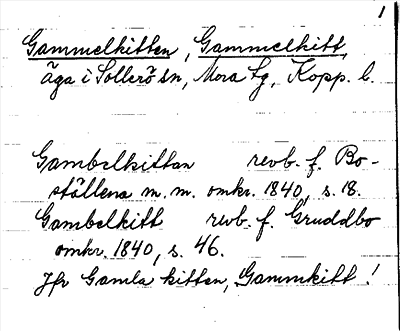 1
Gammelkitten, Gammelkitt,
äga i Sollerö sn, Mora tg, Kopp. l.
Gambelkittan revb. f. Bo-
ställena m. m. omkr. 1840, s. 18.
Gambelkitt revb. f. Gruddbo
omkr. 1840, s. 46.
Jfr Gamla kitten, Gammkitt!